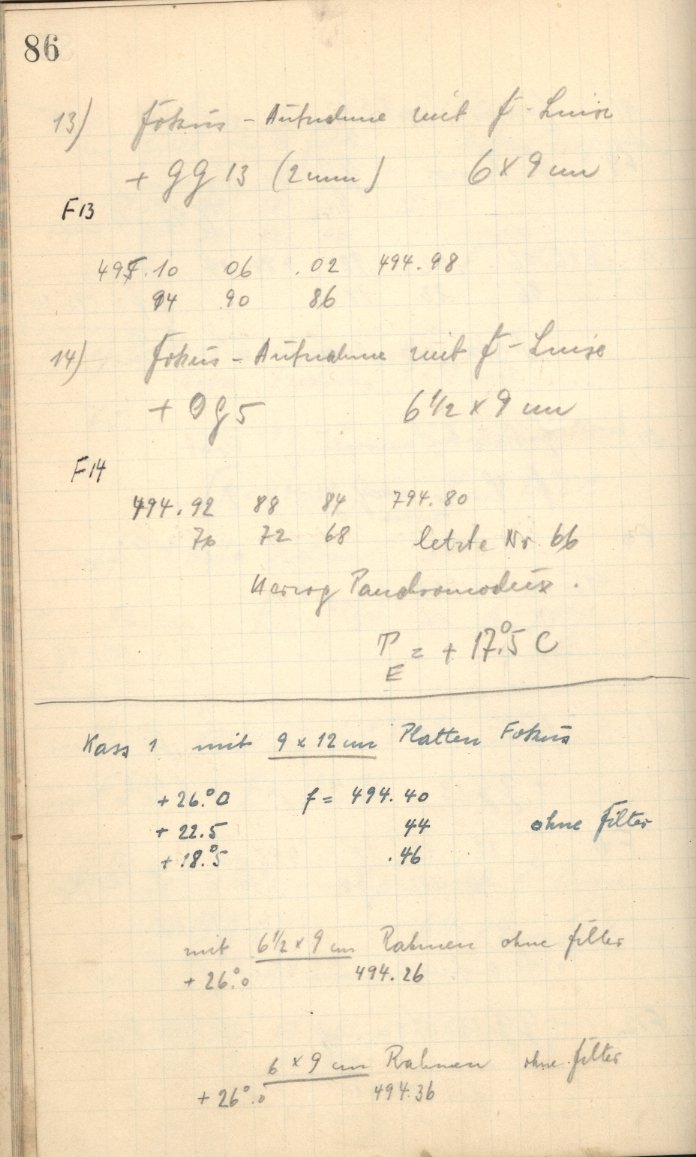 86
13) Fokus - Aufnahme mit F - Linse
+ GG 13 (2mm) 6 x 9 cm
F13
495.10 06 .02 494.98
94 .90 86
14) Fokus - Aufnahme mit F - Linse
+ OG 5 6 1/2 x 9 cm
F14
494.92 88 84 794.80
76 72 68 letzte Nr 66
Herzog
T_E = + 17.°5 C
Kass 1 mit 9 x 12 cm Platten Fokus
+ 26.°0 f = 494.40
+ 22.5 44 ohne Filter
+ 18.°5 .46
mit 6 1/2 x 9 cm Rahmen ohne Filter
+ 26.°0 494.26
6 x 9 cm Rahmen ohne Filter
+ 26°.0 494.36